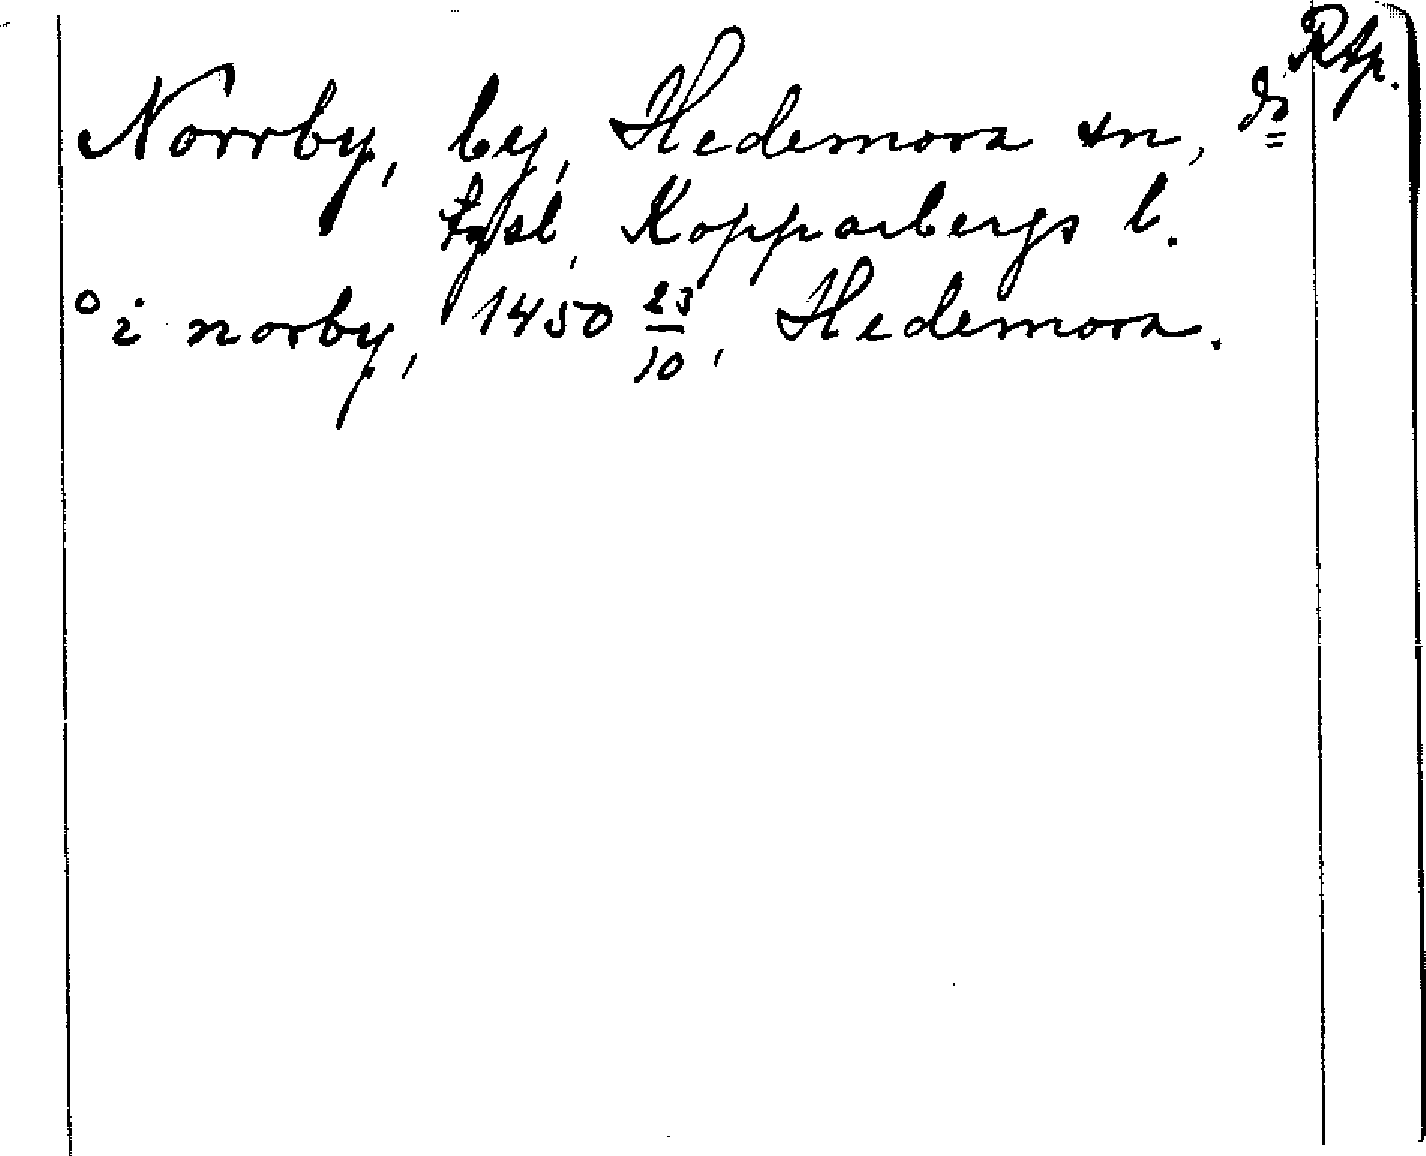 Rtp.
Norrby, by, Hedemora sn, ds
tgsl, Kopparbergs l.
° i norby, 1450 23/10, Hedemora.